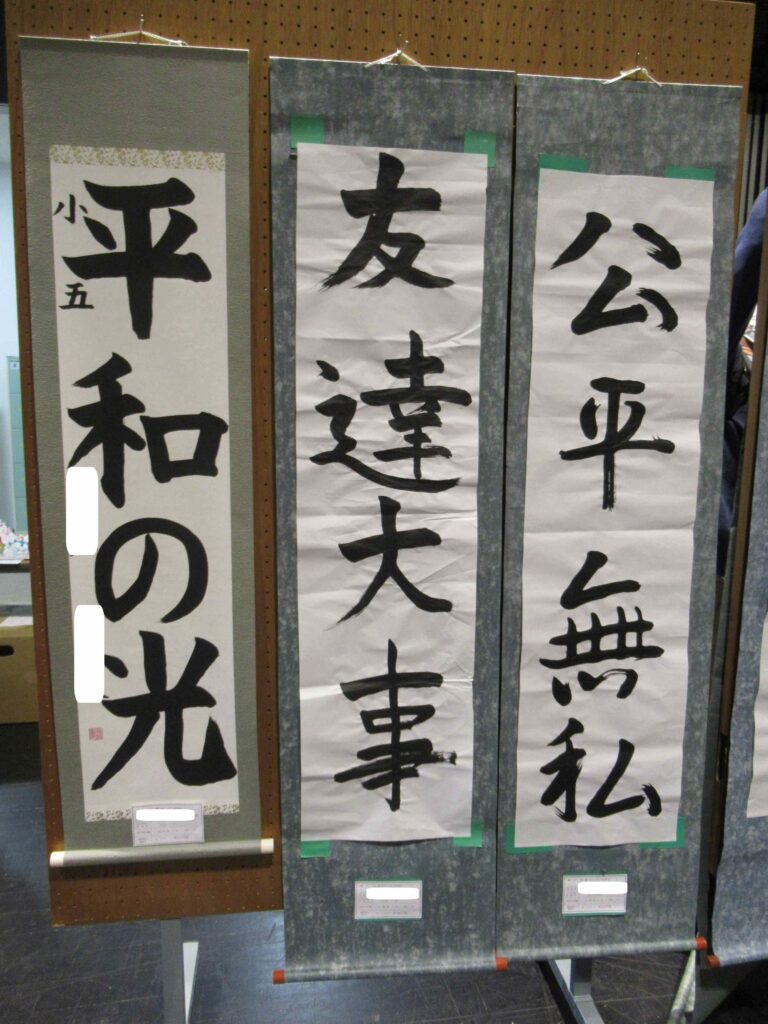 公平無私
友達大事
平和の光
小五